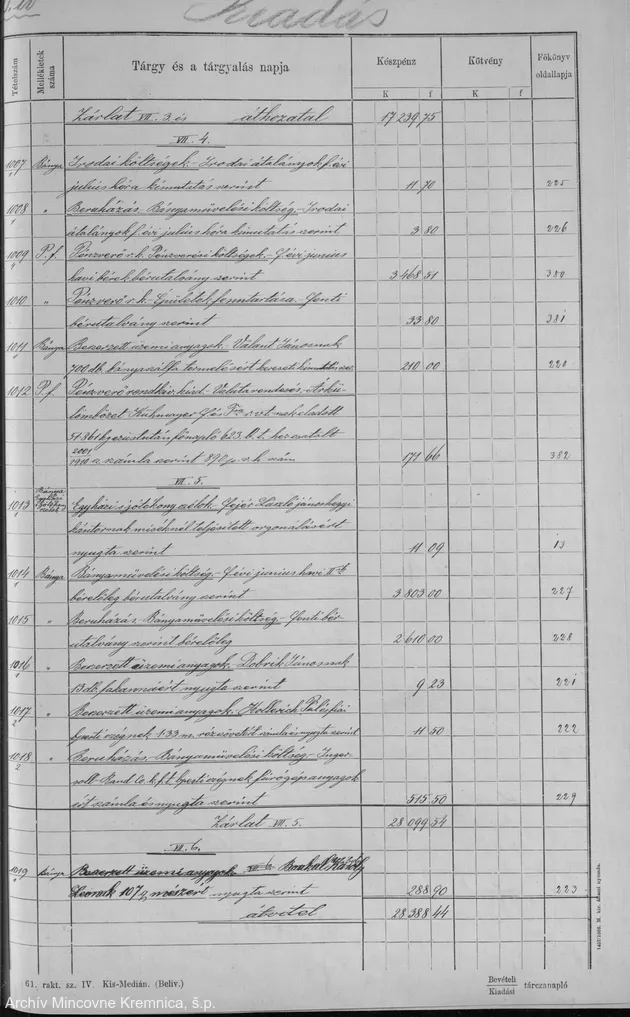 Kiadás
Tételszám Mellékletek száma Tárgy és a tárgyalás napja Készpénz Kötvény Főkönyv oldallapja
K f K f
Zárlat VII. 3. és áthozatal 17 239 75
VII. 4.
1007 Bánya Irodai költségek. - Irodai átalányok f. évi
július hóra kimutatás szerint 11 70 225
1008 " Beruházás. Bányaművelési költség. - Irodai
átalányok f. évi július hóra kimutatás szerint 3 80 226
1009 P. f. Pénzverő r. k. Pénzverési költségek. - f. évi június
havi bérek bérutalvány szerint 3 468 51 380
1010 " Pénzverő r. k. - Épületek fenntartása. - Fenti
bérutalvány szerint 33 80 381
1011 Bánya Beszerzett üzemi anyagok. Valent Jánosnak
700 db. bányaszálfa termeléséért kereseti kimutatás szer. 210 00 220
1012 P. f. Pénzverő rendkív. kiad. - Valutarendezés. - Árkü-
lömbözet
szerint 171 66 382
VII. 5.
1013 Egyházi s jótékony célok. - Fejér László jánoshegyi
kántornak miséknél teljesített orgonálásért
nyugta szerint 11 09 13
1014 Bánya Bányaművelési költség. - f. évi június havi II-ik
bérelőleg bérutalvány szerint 3 803 00 227
1015 " Beruházás. - Bányaművelési költség. - Fenti bér-
utalvány szerint bérelőleg 2 610 00 228
1016 " Beszerzett üzemi anyagok. Dobrik Jánosnak
13 db. nyugta szerint 9 23 221
1017 " Beszerzett üzemi anyagok. Pál és fiai
bpesti cégnek 1.33 m. számla és nyugta szerint 11 50 222
1018 " Beruházás. - Bányaművelési költség. - Inger-
soll Rand Co. k. f. t. bpesti cégnek fúrógép anyagok-
ért számla és nyugta szerint 515 50 229
Zárlat VII. 5. 28 099 54
VII. 6.
1019 Bánya Beszerzett üzemi anyagok
107 q mészért nyugta szerint 288 90 223
átvitel 28 388 44
61. rakt. sz. IV. Kis-Medián. (Beliv.)
Bevételi
Kiadási tárczanapló
M. kir. állami nyomda.
Archív Mincovne Kremnica, š.p.